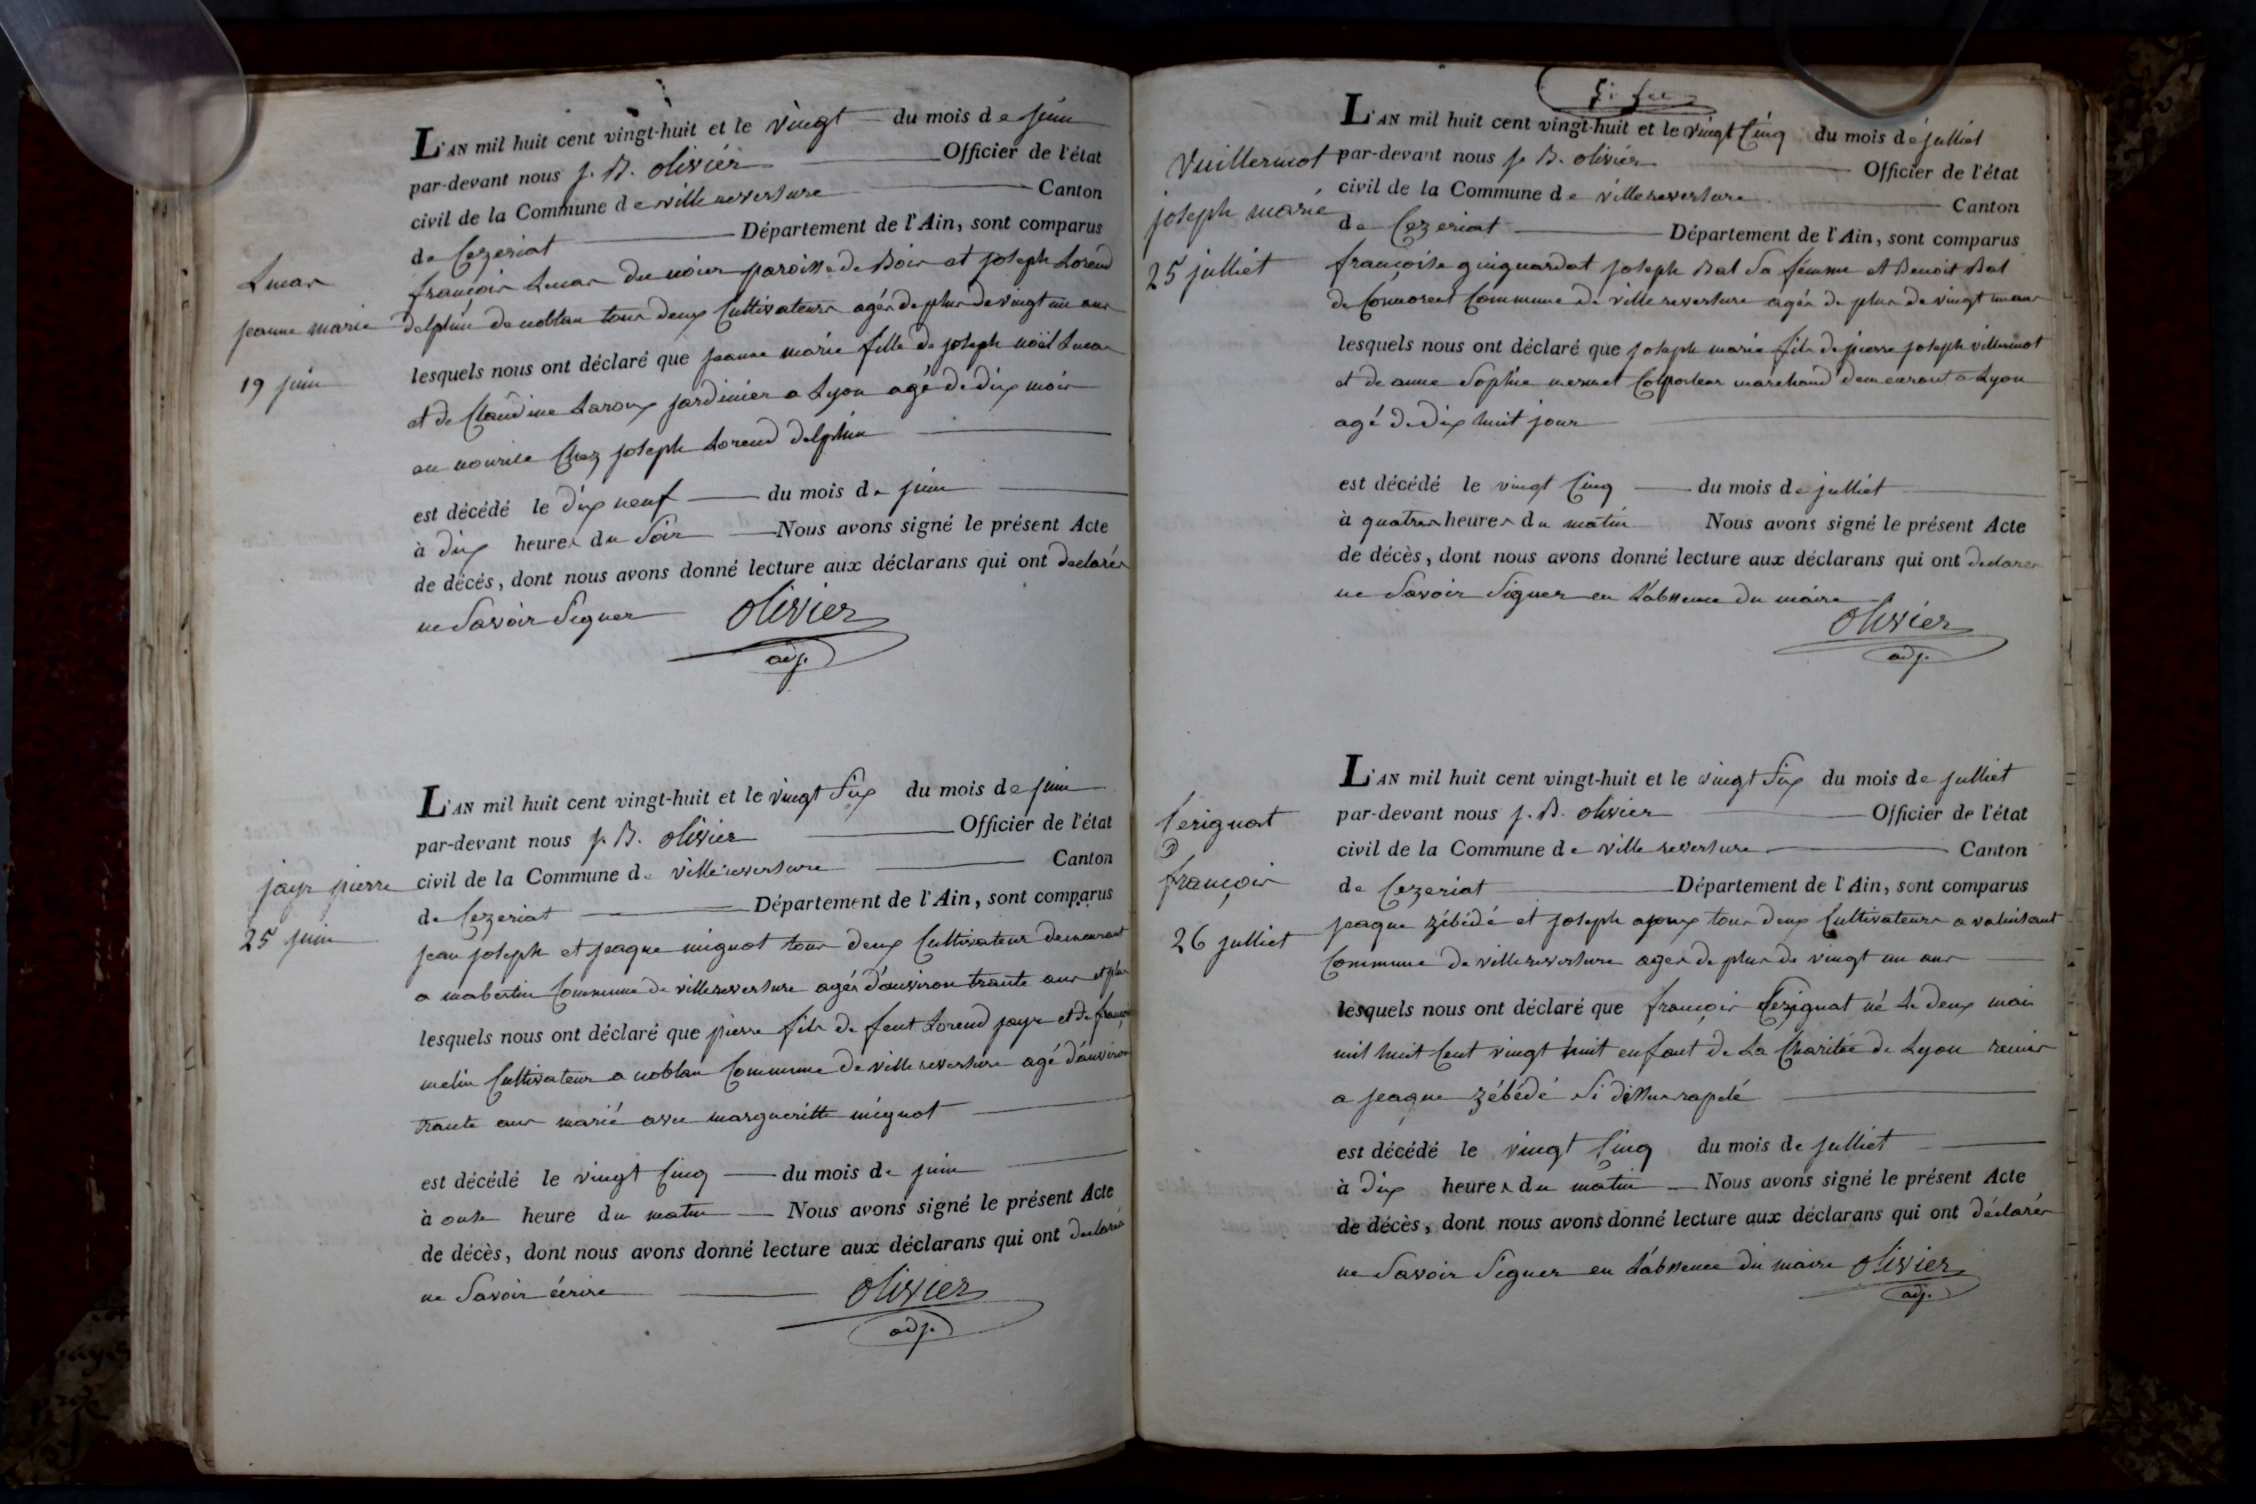 L'AN mil huit cent vingt-huit et le vingt du mois de juin
par-devant nous j. B. olivier Officier de l'état
civil de la Commune de villereverture Canton
de Cezeriat Département de l'Ain, sont comparus
françois Lucas du noier paroisse de Bois et joseph Lorend
delphin de noblan tous deux Cultivateurs agés de plus de vingt un ans
lesquels nous ont déclaré que jeanne marie fille de joseph noël Lucas
et de Claudine Laroux jardinier a Lyon agé de dix mois
en nourice Chez joseph Lorend delphin
est décédé le dix neuf du mois de juin
à dix heures du soir Nous avons signé le présent Acte
de décès, dont nous avons donné lecture aux déclarans qui ont declarés
ne Savoir Signer olivier
adj.
Lucas
jeanne marie
19 juin
L'AN mil huit cent vingt-huit et le vingt Six du mois de juin
par-devant nous j. B. olivier Officier de l'état
civil de la Commune de villereverture Canton
de Cezeriat Département de l'Ain, sont comparus
jean joseph et jeaque mignot tous deux Cultivateur demeurant
a mabertin Commune de villereverture agés d'anviron trante ans et plus
lesquels nous ont déclaré que pierre fils de feut Lorend jayr et de
melin Cultivateur a noblan Commune de villereverture agé d'anviron
trante ans marié avec margueritte mignot
est décédé le vingt Cinq du mois de juin
à onse heure du matin Nous avons signé le présent Acte
de décès, dont nous avons donné lecture aux déclarans qui ont declaré
ne Savoir écrire olivier
adj.
jayr pierre
25 juin
L'AN mil huit cent vingt-huit et le vingt Cinq du mois de julliet
par-devant nous j. B. olivier Officier de l'état
civil de la Commune de villereverture Canton
de Cezeriat Département de l'Ain, sont comparus
françoise guiguardat joseph Bal Sa femme et Benoit Bal
de Commune de villereverture agés de plus de vingt un ans
lesquels nous ont déclaré que joseph marie fils de pierre joseph villermot
et de anne Sophie mermet Colporteur marchand demeurant a Lyon
agé de dix huit jour
est décédé le vingt Cinq du mois de julliet
à quatres heures du matin Nous avons signé le présent Acte
de décès, dont nous avons donné lecture aux déclarans qui ont declarer
ne Savoir Signer en L'absence du maire
olivier
adj.
Vuillermot
joseph marie
25 julliet
L'AN mil huit cent vingt-huit et le vingt Six du mois de julliet
par-devant nous j. B. olivier Officier de l'état
civil de la Commune de villereverture Canton
de Cezeriat Département de l'Ain, sont comparus
jeaque zébédé et joseph ajoux tous deux Cultivateurs a
Commune de villereverture agés de plus de vingt un ans
lesquels nous ont déclaré que françois né Le deux mai
mil huit Cent vingt huit enfant de La Charitée de Lyon remis
a jeaque zébédé Si dessus rapelé
est décédé le vingt Cinq du mois de julliet
à dix heures du matin Nous avons signé le présent Acte
de décès, dont nous avons donné lecture aux déclarans qui ont déclarés
ne Savoir Signer en L'absence du maire olivier
adj.
françois
26 julliet